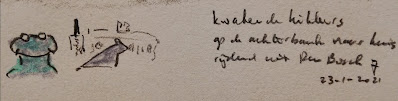 kwakende kikkers
op de achterbank naar huis
rijdend uit Den Bosch
23-1-2021